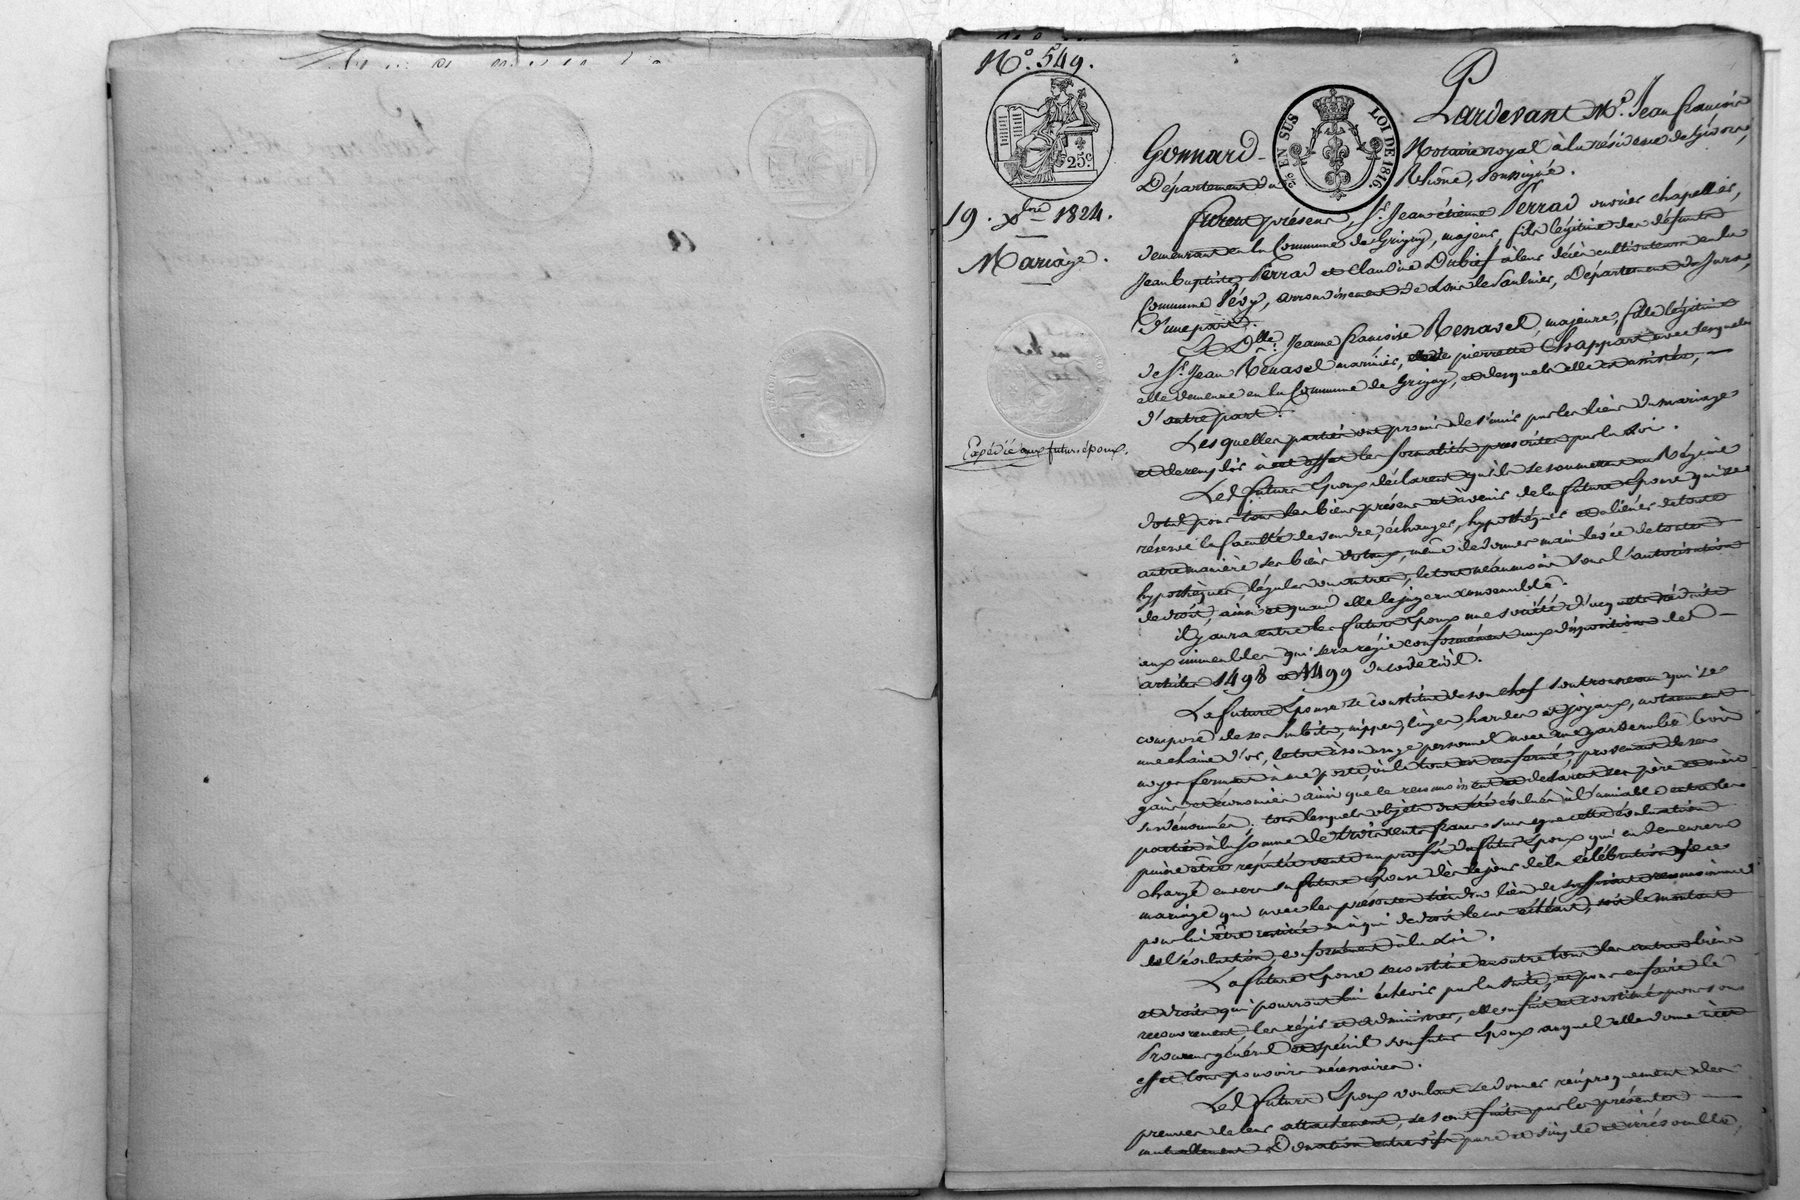 No. 549.
25c
2c EN SUS LOI DE 1816.
19. Xbre 1824.
Mariage.
Expédié aux futurs époux.
Pardevant Me. Jean francois
Gonnard Notaire royal à la résidence de Givors,
Département du Rhône, soussigné.
furent présens, Sr. Jean étienne Perrad ouvrier chapellier,
demeurant en la Commune de Grigny, majeur, fils légitime des défunts
Jean baptiste Perrad et Claudine Dubief à leur décès cultivateurs en la
Commune Pévy, arrondissement de Lons le Saulnier, Département du Jura,
d'une part.
Et Dlle. Jeanne francoise Renavel, majeure, fille légitime
de Sr. Jean Renavel marinier, et de pierrette Chappart avec lesquels
elle demeure en la Commune de Grigny, et desquels elle est assistée,
d'autre part.
Lesquelles parties ont promis de s'unir par les liens du mariage
et de remplir à cet effet les formalités prescrites par la Loi.
Les futurs Epoux déclarent qu'ils se soumettent au Régime
dotal pour tous les biens présens et à venir de la future Epouse qui se
réserve la faculté de vendre, échanger, hypothéquer et aliéner de toute
autre manière ses biens dotaux, même de donner main levée de toutes
hypothèques, légales ou autres, le tout néanmoins sous l'autorisation
de droit, ainsi et quand elle le jugera convenable.
il y aura entre les futurs Epoux une société d'acquets réduite
aux immeubles qui sera régie conformément aux dispositions des
articles 1498 et 1499 du code civil.
La future Epouse se constitue de son chef son trousseau qui se
compose de ses habits, nippes, linges hardes et joyaux, notamment
une chaine d'or, le tout à son usage personnel avec une garderobe bois
noyer fermant à une porte, où le tout est renfermé, provenant de ses
gains et économies ainsi que le reconnoissent et déclarent ses père et mère
susdénommés. tous lesquels objets ont été évalués à l'amiable entre les
parties à la somme de trois cents francs sans que cette évaluation
puisse être réputée vente au profit du futur Epoux qui en demeurera
chargé envers sa future Epouse dès le jour de la célébration de ce
mariage qui avec les présentes tiendra lieu de suffisant reconnoissance
pour lui être restitué ou à qui de droit le cas échéant, soit le montant
de l'évaluation, conformément à la Loi.
La future Epouse se constitue en outre tous les autres biens
et droits qui pourront lui échevir par la suite, et pour en faire le
recouvrement, les régir et administrer, elle en fait et constitue pour son
Procureur général et spécial son futur Epoux auquel elle donne à cet
effet tous pouvoirs nécessaires.
Les futurs Epoux voulant se donner réciproquement des
preuves de leur attachement, se sont faits par les présentes
mutuellement Donation entre vifs pure et simple et irrévocable,